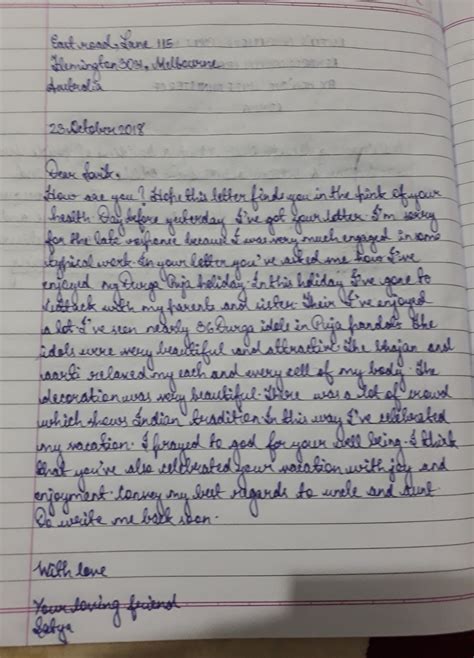 East road, Lane 115
Flemington 3031, Melbourne
Australia
23 October 2018
Dear
How are you? Hope this letter finds you in the pink of your
health Day before yesterday I've got your letter. I'm sorry
for the late because I was very much engaged in some
typical work. In your letter you've asked me how I've
enjoyed my Durga Puja holiday. In this holiday I've gone to
with my parents and sister. I've enjoyed
a lot I've seen nearly Durga idols in Puja pandals. The
idols were very beautiful and The bhajan and
aarti relaxed my each and every cell of my body. The
decoration was very beautiful. There was a lot of crowd
which shows Indian tradition In this way I've celebrated
my vacation. I prayed to god for your well being. I think
that you've also celebrated your vacation with joy and
enjoyment. Convey my best regards to uncle and aunt.
Do write me back soon.
With love
Your loving friend
Satya